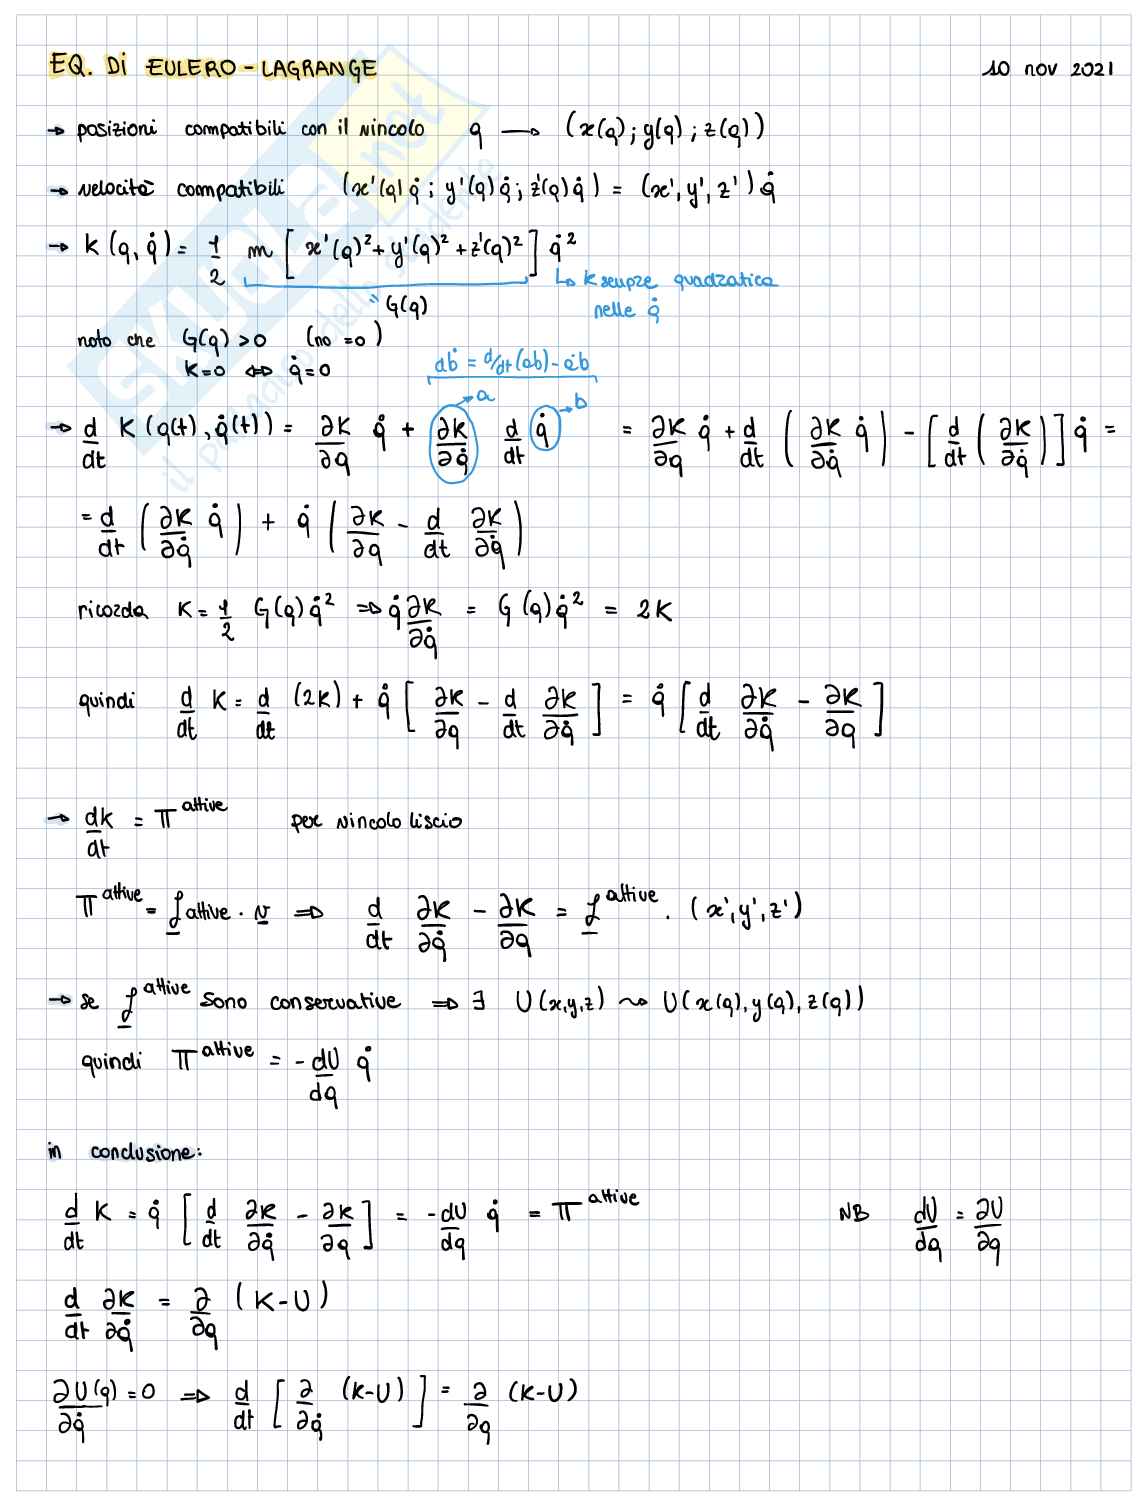 EQ. Di EULERO-LAGRANGE 10 nov 2021
→ posizioni compatibili con il vincolo q ⟶ (x(q); y(q); z(q))
→ velocità compatibili (x'(q) q̇; y'(q) q̇; z'(q) q̇) = (x', y', z') q̇
→ K(q, q̇) = 1/2 m [x'(q)² + y'(q)² + z'(q)²] q̇²
↳ K sempre quadratica
nelle q̇
" G(q)
noto che G(q) > 0 (no = 0)
K=0 ⇔ q̇=0
aḃ = d/dt (ab) - ȧb
→ a
→ b
→ d/dt K(q(t), q̇(t)) = ∂K/∂q q̇ + ∂K/∂q̇ d/dt q̇ = ∂K/∂q q̇ + d/dt (∂K/∂q̇ q̇) - [d/dt (∂K/∂q̇)] q̇ =
= d/dt (∂K/∂q̇ q̇) + q̇ (∂K/∂q - d/dt ∂K/∂q̇)
ricorda K = 1/2 G(q) q̇² ⇒ q̇ ∂K/∂q̇ = G(q) q̇² = 2K
quindi d/dt K = d/dt (2K) + q̇ [∂K/∂q - d/dt ∂K/∂q̇] = q̇ [d/dt ∂K/∂q̇ - ∂K/∂q]
→ dk/dt = π^attive per vincolo liscio
π^attive = f attive · v ⇒ d/dt ∂K/∂q̇ - ∂K/∂q = f^attive · (x', y', z')
→ se f^attive sono conservative ⇒ ∃ U(x,y,z) ⇝ U(x(q), y(q), z(q))
quindi π^attive = - dU/dq q̇
in conclusione:
d/dt K = q̇ [d/dt ∂K/∂q̇ - ∂K/∂q] = - dU/dq q̇ = π^attive NB dU/dq = ∂U/∂q
d/dt ∂K/∂q̇ = ∂/∂q (K-U)
∂U(q)/∂q̇ = 0 ⇒ d/dt [∂/∂q̇ (K-U)] = ∂/∂q (K-U)